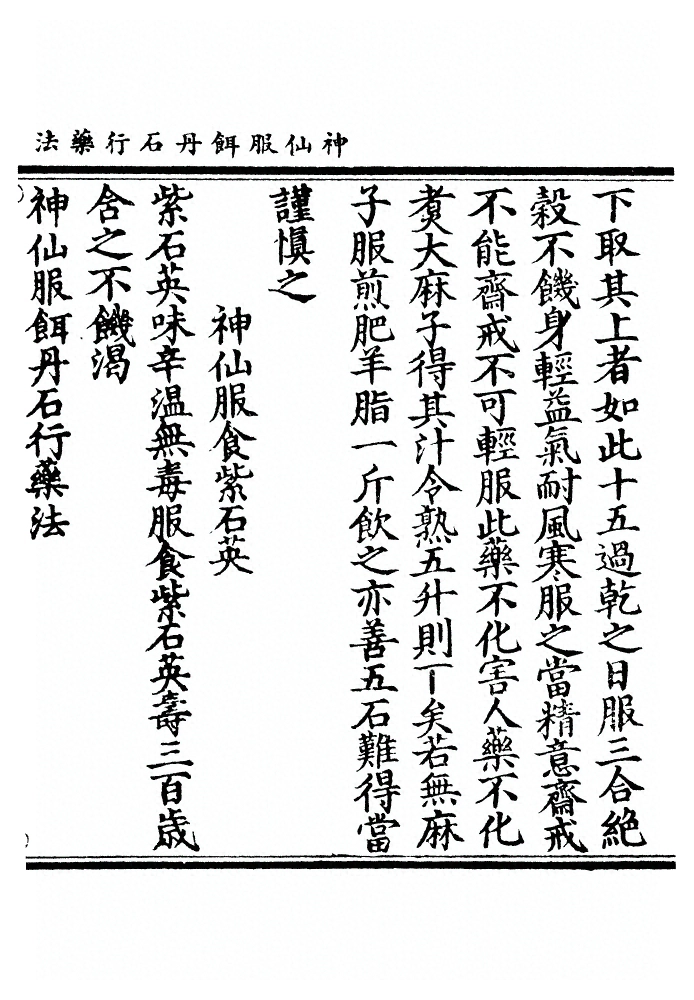 神仙服餌丹石行藥法
下取其上者如此十五過乾之日服三合絕
穀不饑身輕益氣耐風寒服之當精意齋戒
不能齋戒不可輕服此藥不化害人藥不化
煑大麻子得其汁令熟五升則丅矣若無麻
子服煎肥羊脂一斤飲之亦善五石難得當
謹慎之
神仙服食紫石英
紫石英味辛溫無毒服食紫石英壽三百歲
含之不饑渴
神仙服餌丹石行藥法